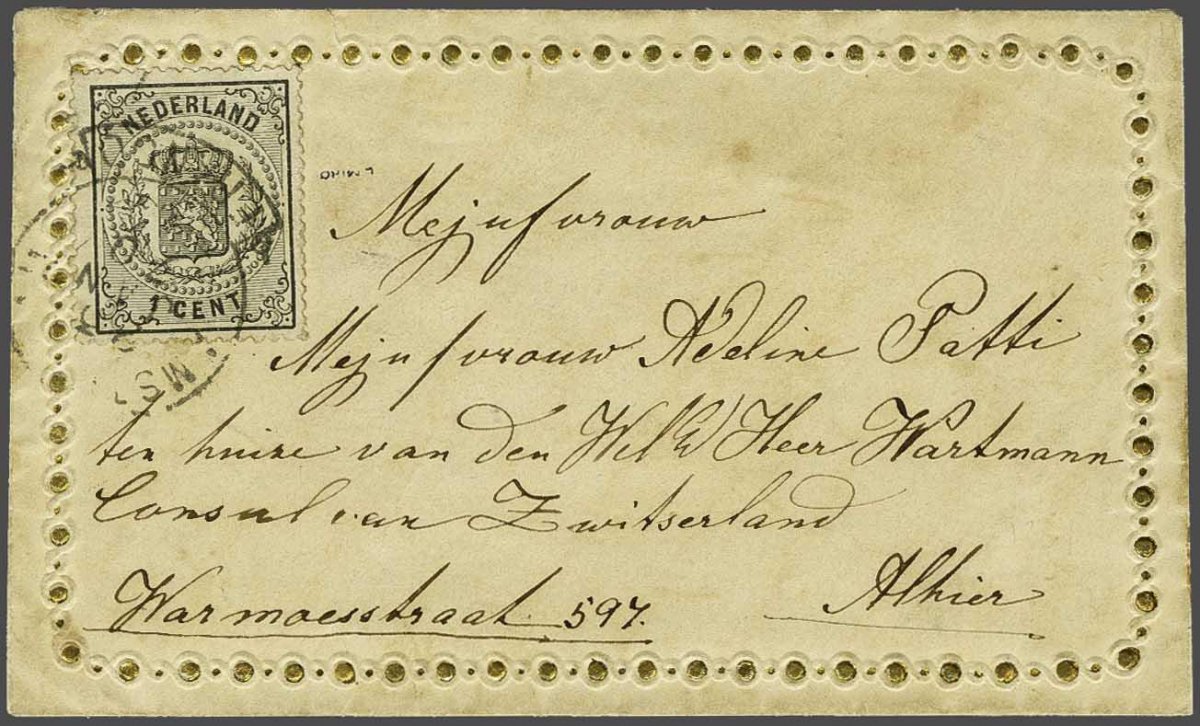 NEDERLAND
1 CENT
Mejufvrouw
Mejufvrouw Adeline Patti
ten huize van den Heer Wartmann
Consul van Zwitserland
Alhier
Warmoesstraat 597.